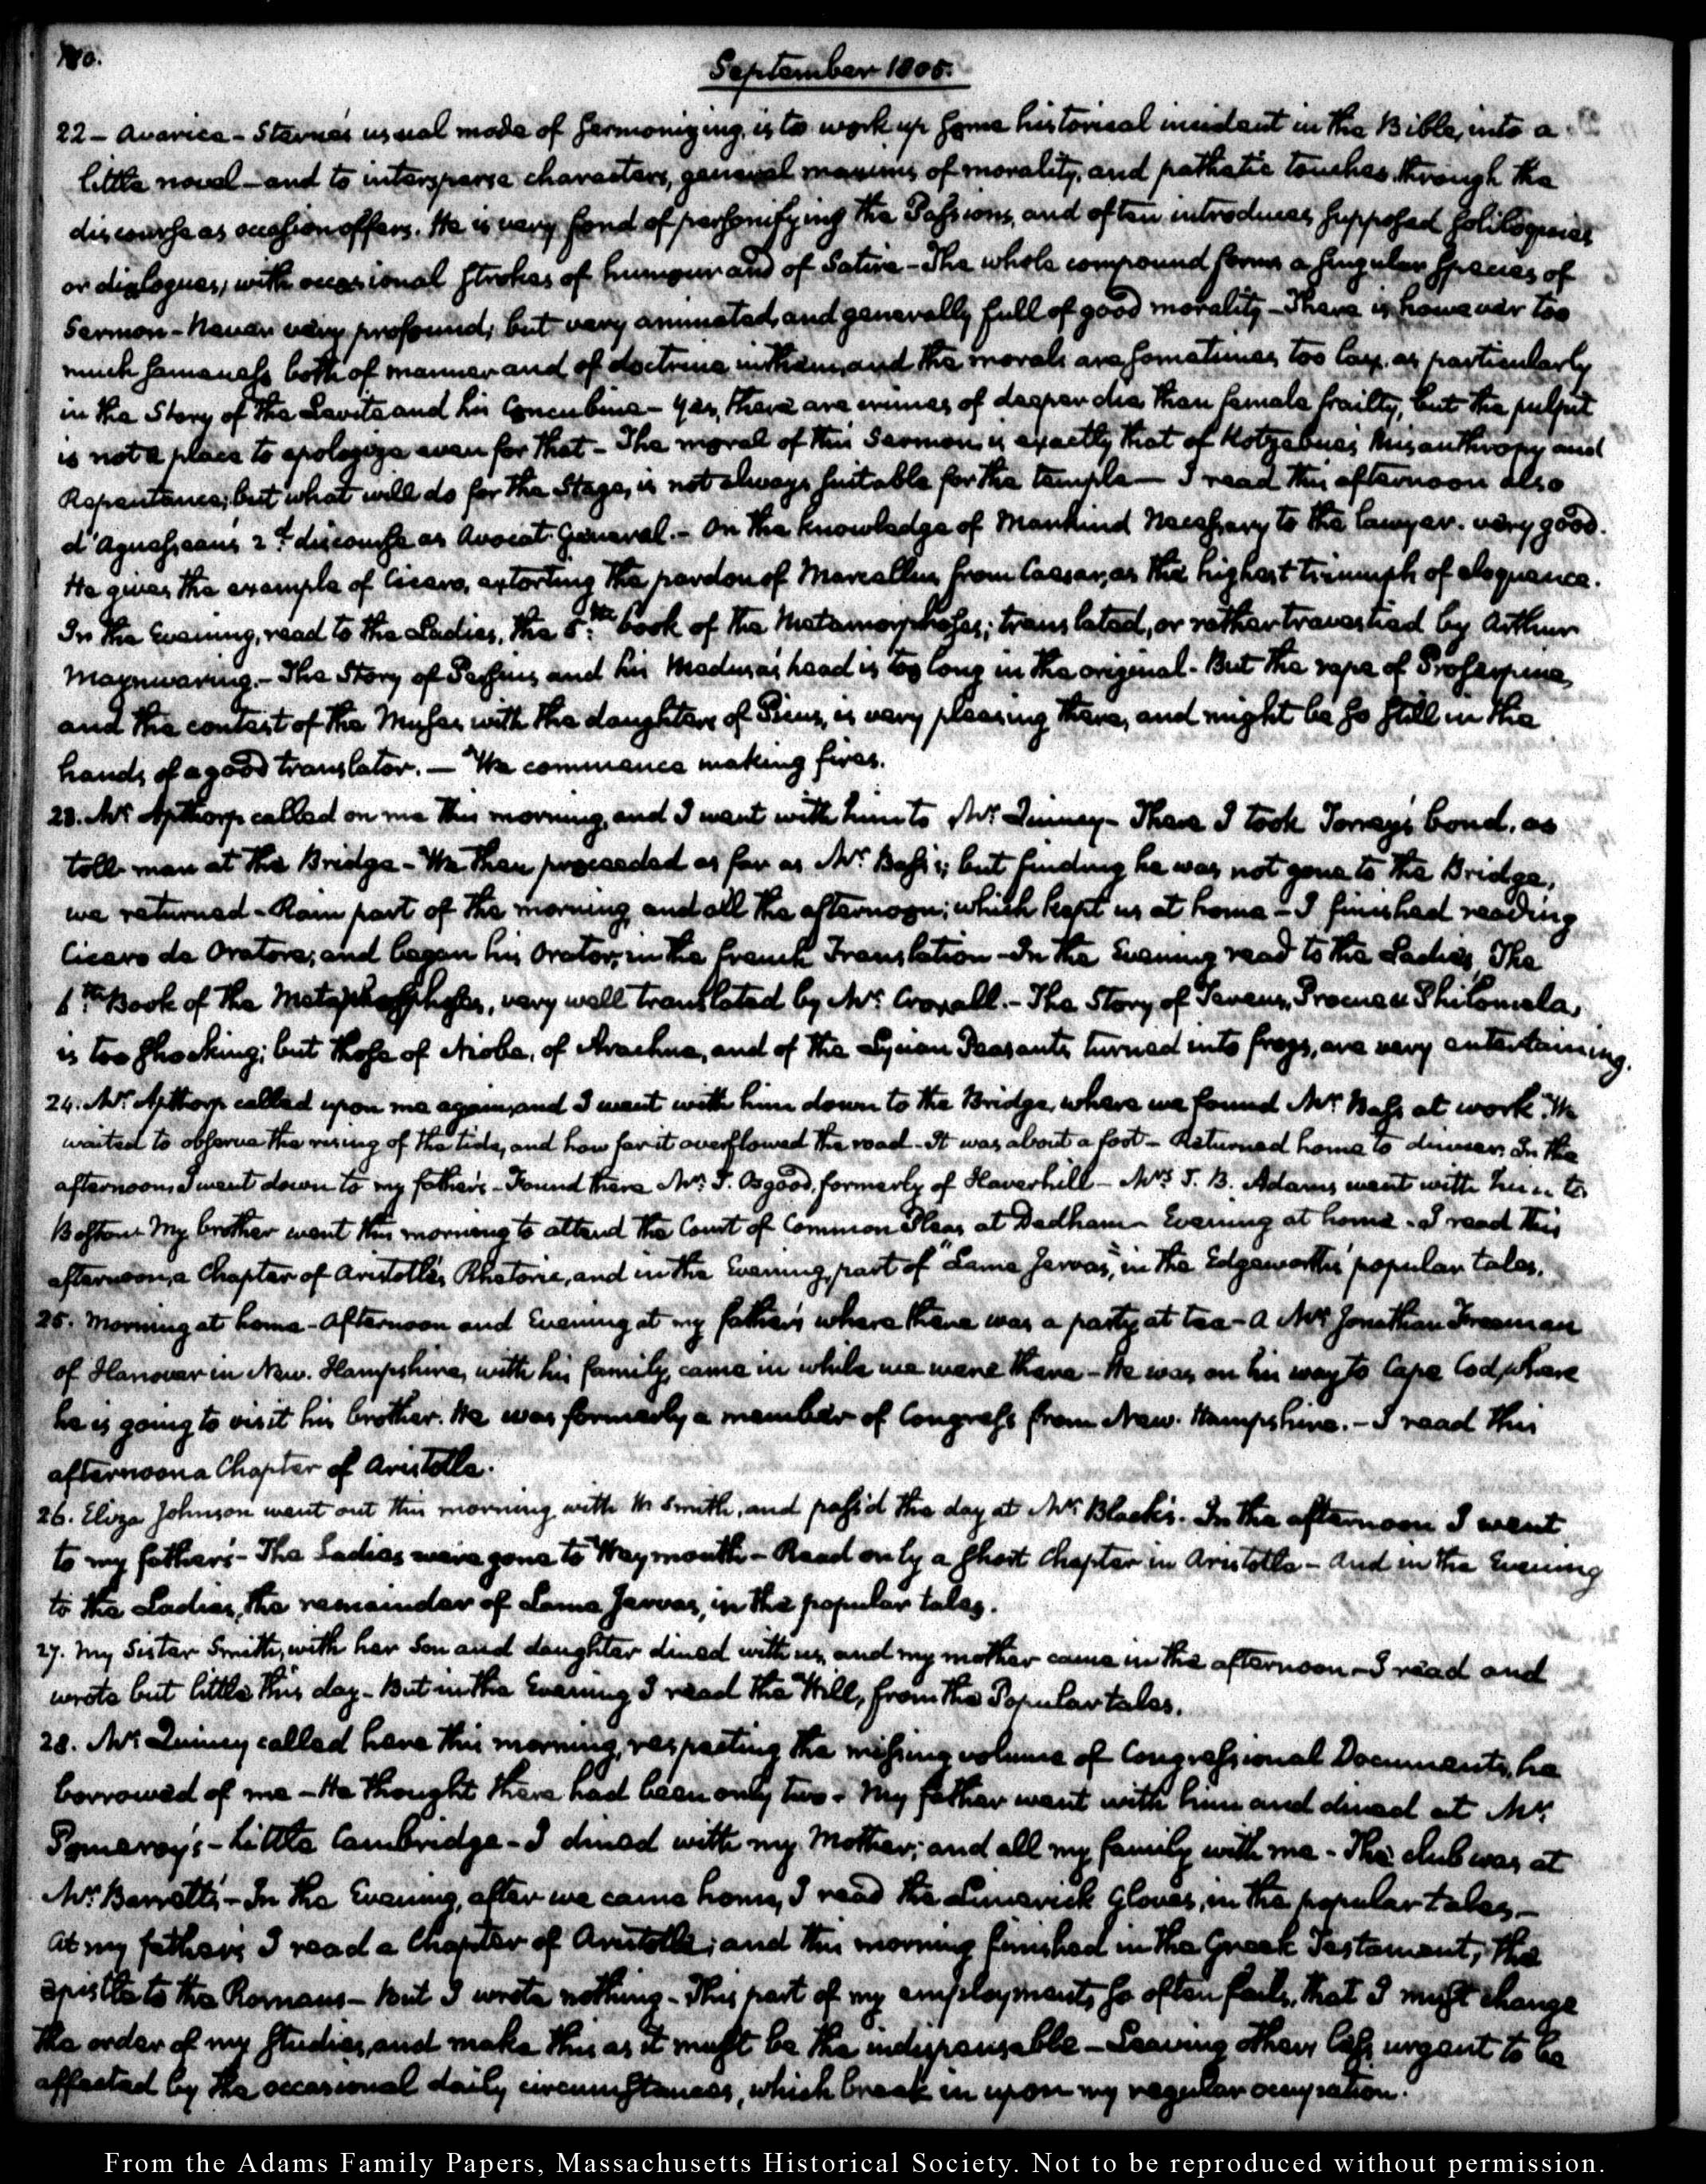 180.
September 1805.
22 - Avarice - Sterne's usual mode of sermonizing, is to work up some historical incident in the Bible, into a
little novel - and to intersperse characters, general maxims of morality, and pathetic touches through the
discourse as occasion offers. He is very fond of personifying the Passions, and often introduces supposed soliloquies
or dialogues, with occasional strokes of humour and of Satire - The whole compound forms a singular species of
Sermon - Never very profound, but very animated, and generally full of good morality - There is however too
much sameness both of manner and of doctrine in them, and the morals are sometimes too lax, as particularly
in the Story of the Levite and his Concubine - Yes, there are crimes of deeper die than female frailty, but the pulpit
is not a place to apologize even for that - The moral of this Sermon is exactly that of Kotzebue's Misanthropy and
Repentance; but what will do for the Stage, is not always suitable for the temple - I read this afternoon also
d'Aguesseau's 2d. discourse as Avocat General. - On the knowledge of Mankind necessary to the lawyer. very good.
He gives the example of Cicero, extorting the pardon of Marcellus from Caesar, as the highest triumph of eloquence.
In the Evening, read to the Ladies, the 5th. book of the Metamorphoses; translated, or rather travestied by Arthur
Maynwaring. - The Story of Perseus and his Medusa's head is too long in the original. But the rape of Proserpine,
and the contest of the Muses with the daughters of Pierus, is very pleasing there, and might be so still in the
hands of a good translator. - We commence making fires.
23. Mr. Apthorp called on me this morning, and I went with him to Mr. Quincy - There I took Torrey's bond, as
toll-man at the Bridge - We then proceeded as far as Mr. Bass's; but finding he was not gone to the Bridge,
we returned - Rain part of the morning, and all the afternoon; which kept us at home - I finished reading
Cicero de Oratore; and began his Orator, in the french Translation - In the Evening read to the Ladies, The
6th. Book of the Metamorphoses, very well translated by Mr. Croxall. - The Story of Tereus, Procne & Philomela,
is too shocking; but those of Niobe, of Arachne, and of the Lycian Peasants turned into frogs, are very entertaining.
24. Mr. Apthorp called upon me again, and I went with him down to the Bridge, where we found Mr. Bass at work We
waited to observe the rising of the tide, and how far it overflowed the road - It was about a foot - Returned home to dinner. In the
afternoon I went down to my father's - Found there Mr. P. Osgood, formerly of Haverhill - Mrs. T. B. Adams went with him to
Boston - My brother went this morning to attend the Court of Common Pleas at Dedham - Evening at home - I read this
afternoon, a Chapter of Aristotle's Rhetoric, and in the Evening, part of "Lame Jervas", in the Edgeworths' popular tales.
25. Morning at home - Afternoon and Evening at my father's where there was a party at tea - A Mr. Jonathan Freeman
of Hanover in New-Hampshire, with his family, came in while we were there - He was on his way to Cape Cod, where
he is going to visit his brother. He was formerly a member of Congress from New-Hampshire. - I read this
afternoon a Chapter of Aristotle.
26. Eliza Johnson went out this morning with Mr Smith, and pass'd the day at Mr. Black's. In the afternoon I went
to my father's - The Ladies were gone to Weymouth - Read only a short Chapter in Aristotle - And in the Evening
to the Ladies, the remainder of Lame Jervas, in the popular tales.
27. My Sister Smith, with her Son and daughter dined with us, and my mother came in the afternoon - I read and
wrote but little this day - But in the Evening I read the Will, from the Popular tales.
28. Mr. Quincy called here this morning, respecting the missing volume of Congressional Documents, he
borrowed of me - He thought there had been only two - My father went with him and dined at Mr.
Pomeroy's - Little Cambridge - I dined with my Mother; and all my family with me - The club was at
Mr. Barrett's - In the Evening, after we came home, I read the Limerick Gloves, in the popular tales. -
At my father's I read a Chapter of Aristotle; and this morning finished in the Greek Testament, the
epistle to the Romans - But I wrote nothing - This part of my employments so often fails, that I must change
the order of my studies, and make this as it must be the indispensable - Leaving others less urgent to be
affected by the occasional daily circumstances, which break in upon my regular occupation.
From the Adams Family Papers, Massachusetts Historical Society. Not to be reproduced without permission.